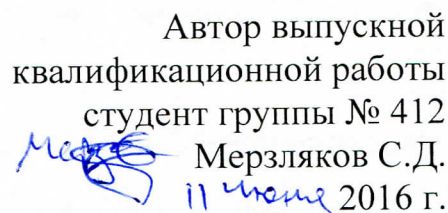 Автор выпускной
квалификационной работы
студент группы № 412
Мерзляков С.Д.
11 июня 2016 г.